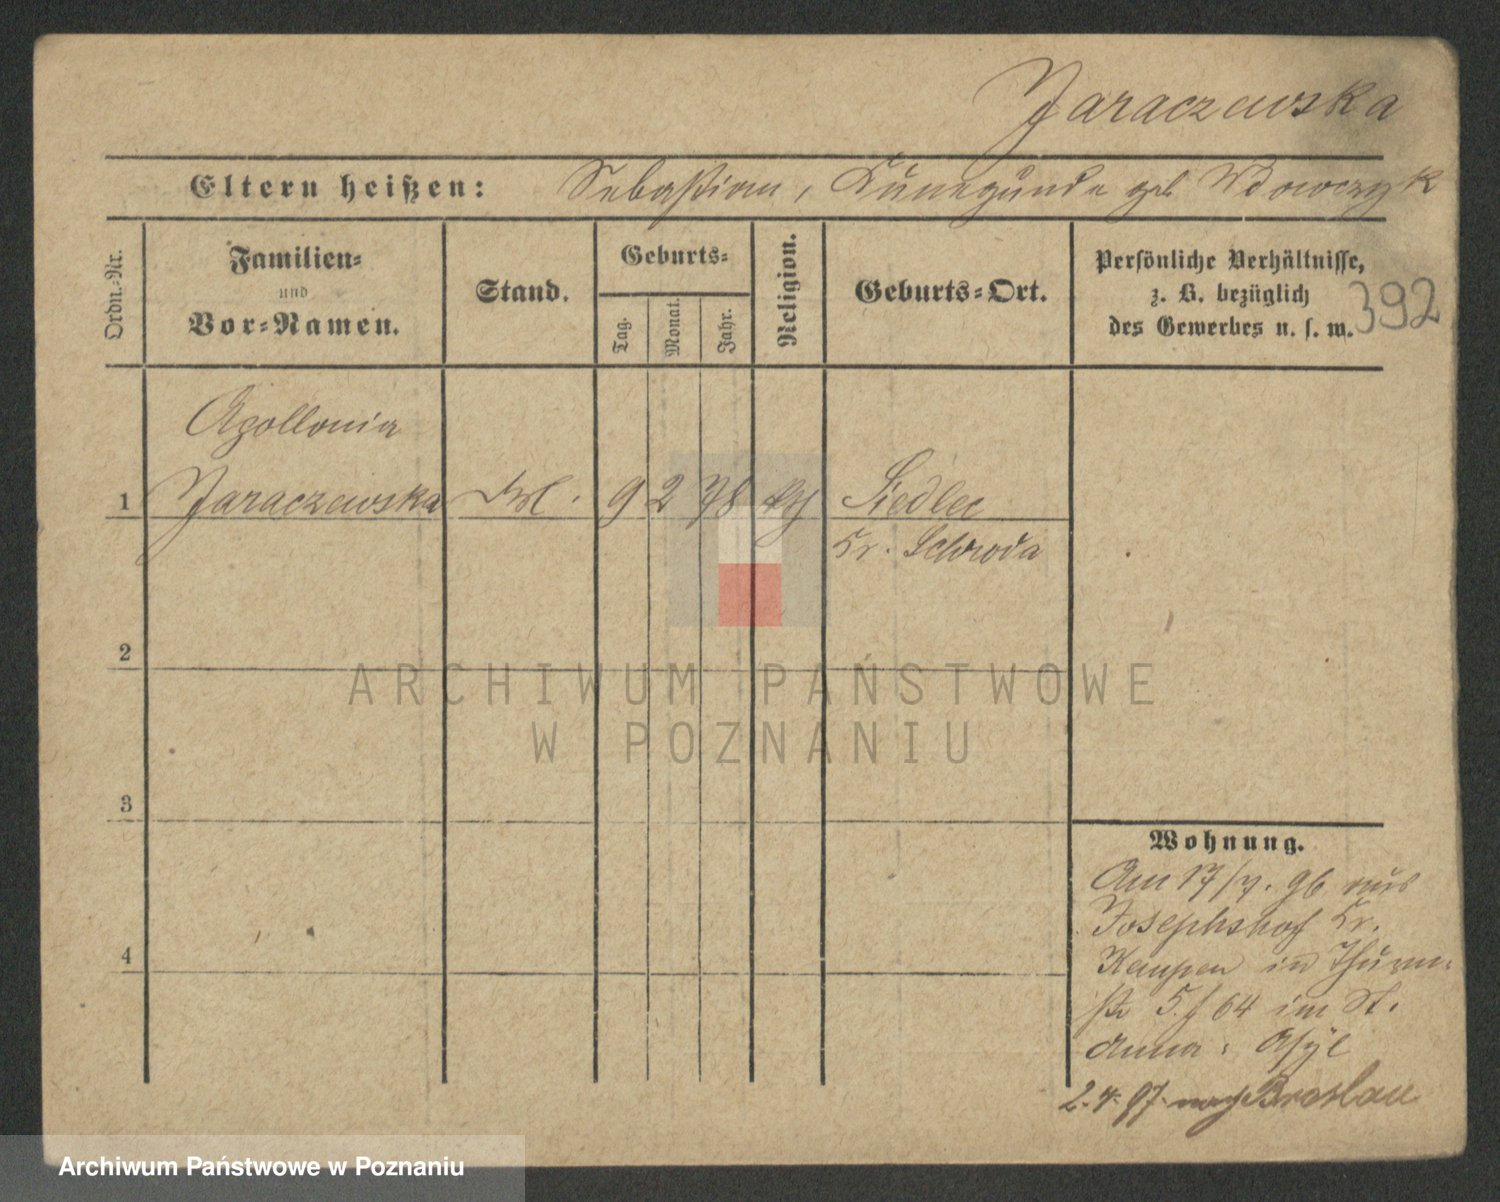 Jaraczewska
Eltern heißen: Sebastian, Kunegunde geb Wdowczyk
Ordn.-Nr.
Familien-
und
Vor-Namen.
Stand.
Geburts-
Tag.
Monat.
Jahr.
Religion.
Geburts-Ort.
Persönliche Verhältnisse,
z. B. bezüglich
des Gewerbes u. s. w.
392
Apollonia
1 Jaraczewska Frl. 9 2 78 kth Siedlec
Kr. Schroda
2
3
4
Wohnung.
Am 17/7. 96 aus
Josephshof Kr.
Kempen in Thurm-
str 5. / 64 im St.
Anna: Asyl
2.4.97. nach Breslau
ARCHIWUM PAŃSTWOWE
W POZNANIU
Archiwum Państwowe w Poznaniu